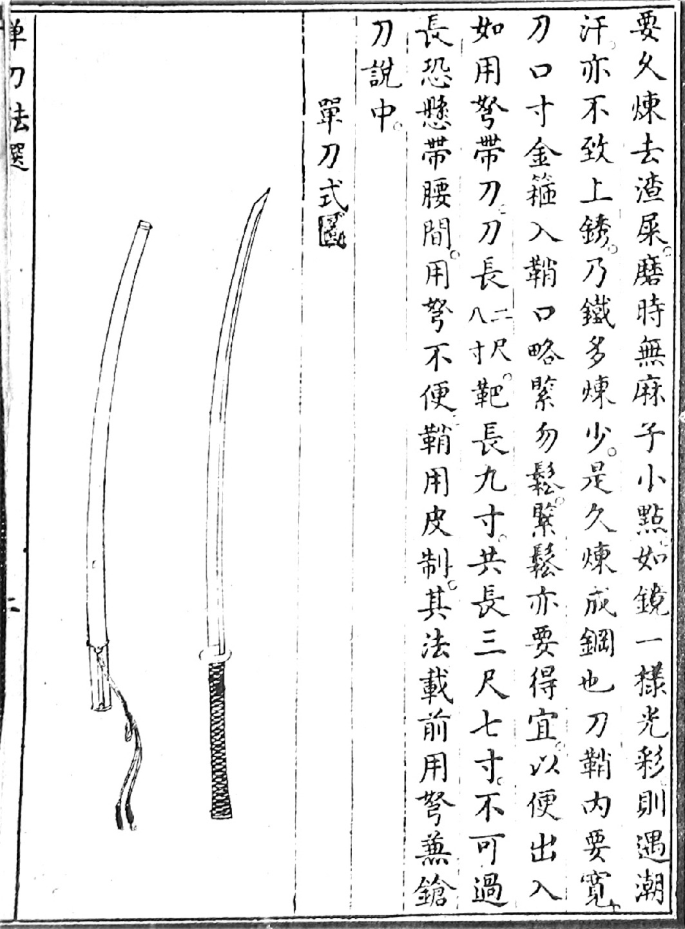 要久煉去渣屎。磨時無麻子小點。如鏡一樣光彩。則遇潮
汗。亦不致上銹。乃鐵多煉少。是久煉成鋼也。刀鞘內要寬。
刀口寸金箍入鞘口略緊勿鬆。緊鬆亦要得宜。以便出入
如用弩帶刀。刀長二尺八寸。靶長九寸。共長三尺七寸。不可過
長恐懸帶腰間。用弩不便鞘用皮制。其法載前用弩兼鎗
刀說中。
單刀式
單刀法選
二